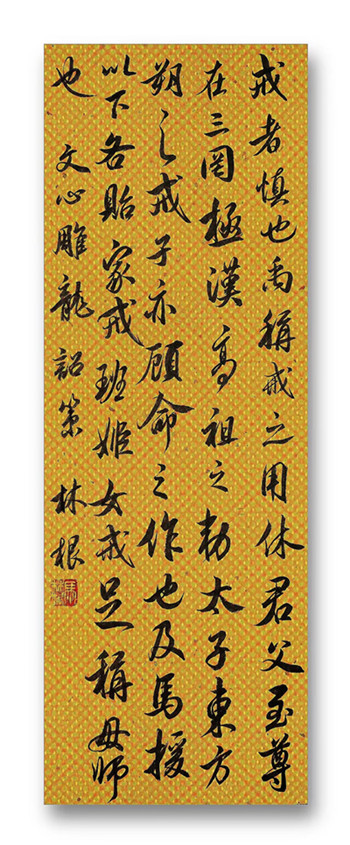 戒者慎也禹稱戒之用休君父至尊
在三罔極漢高祖之勅太子東方
朔之戒子亦顧命之作也及馬援
以下各貽家戒班姬女戒足稱母師
也 文心雕龍詔策 林根